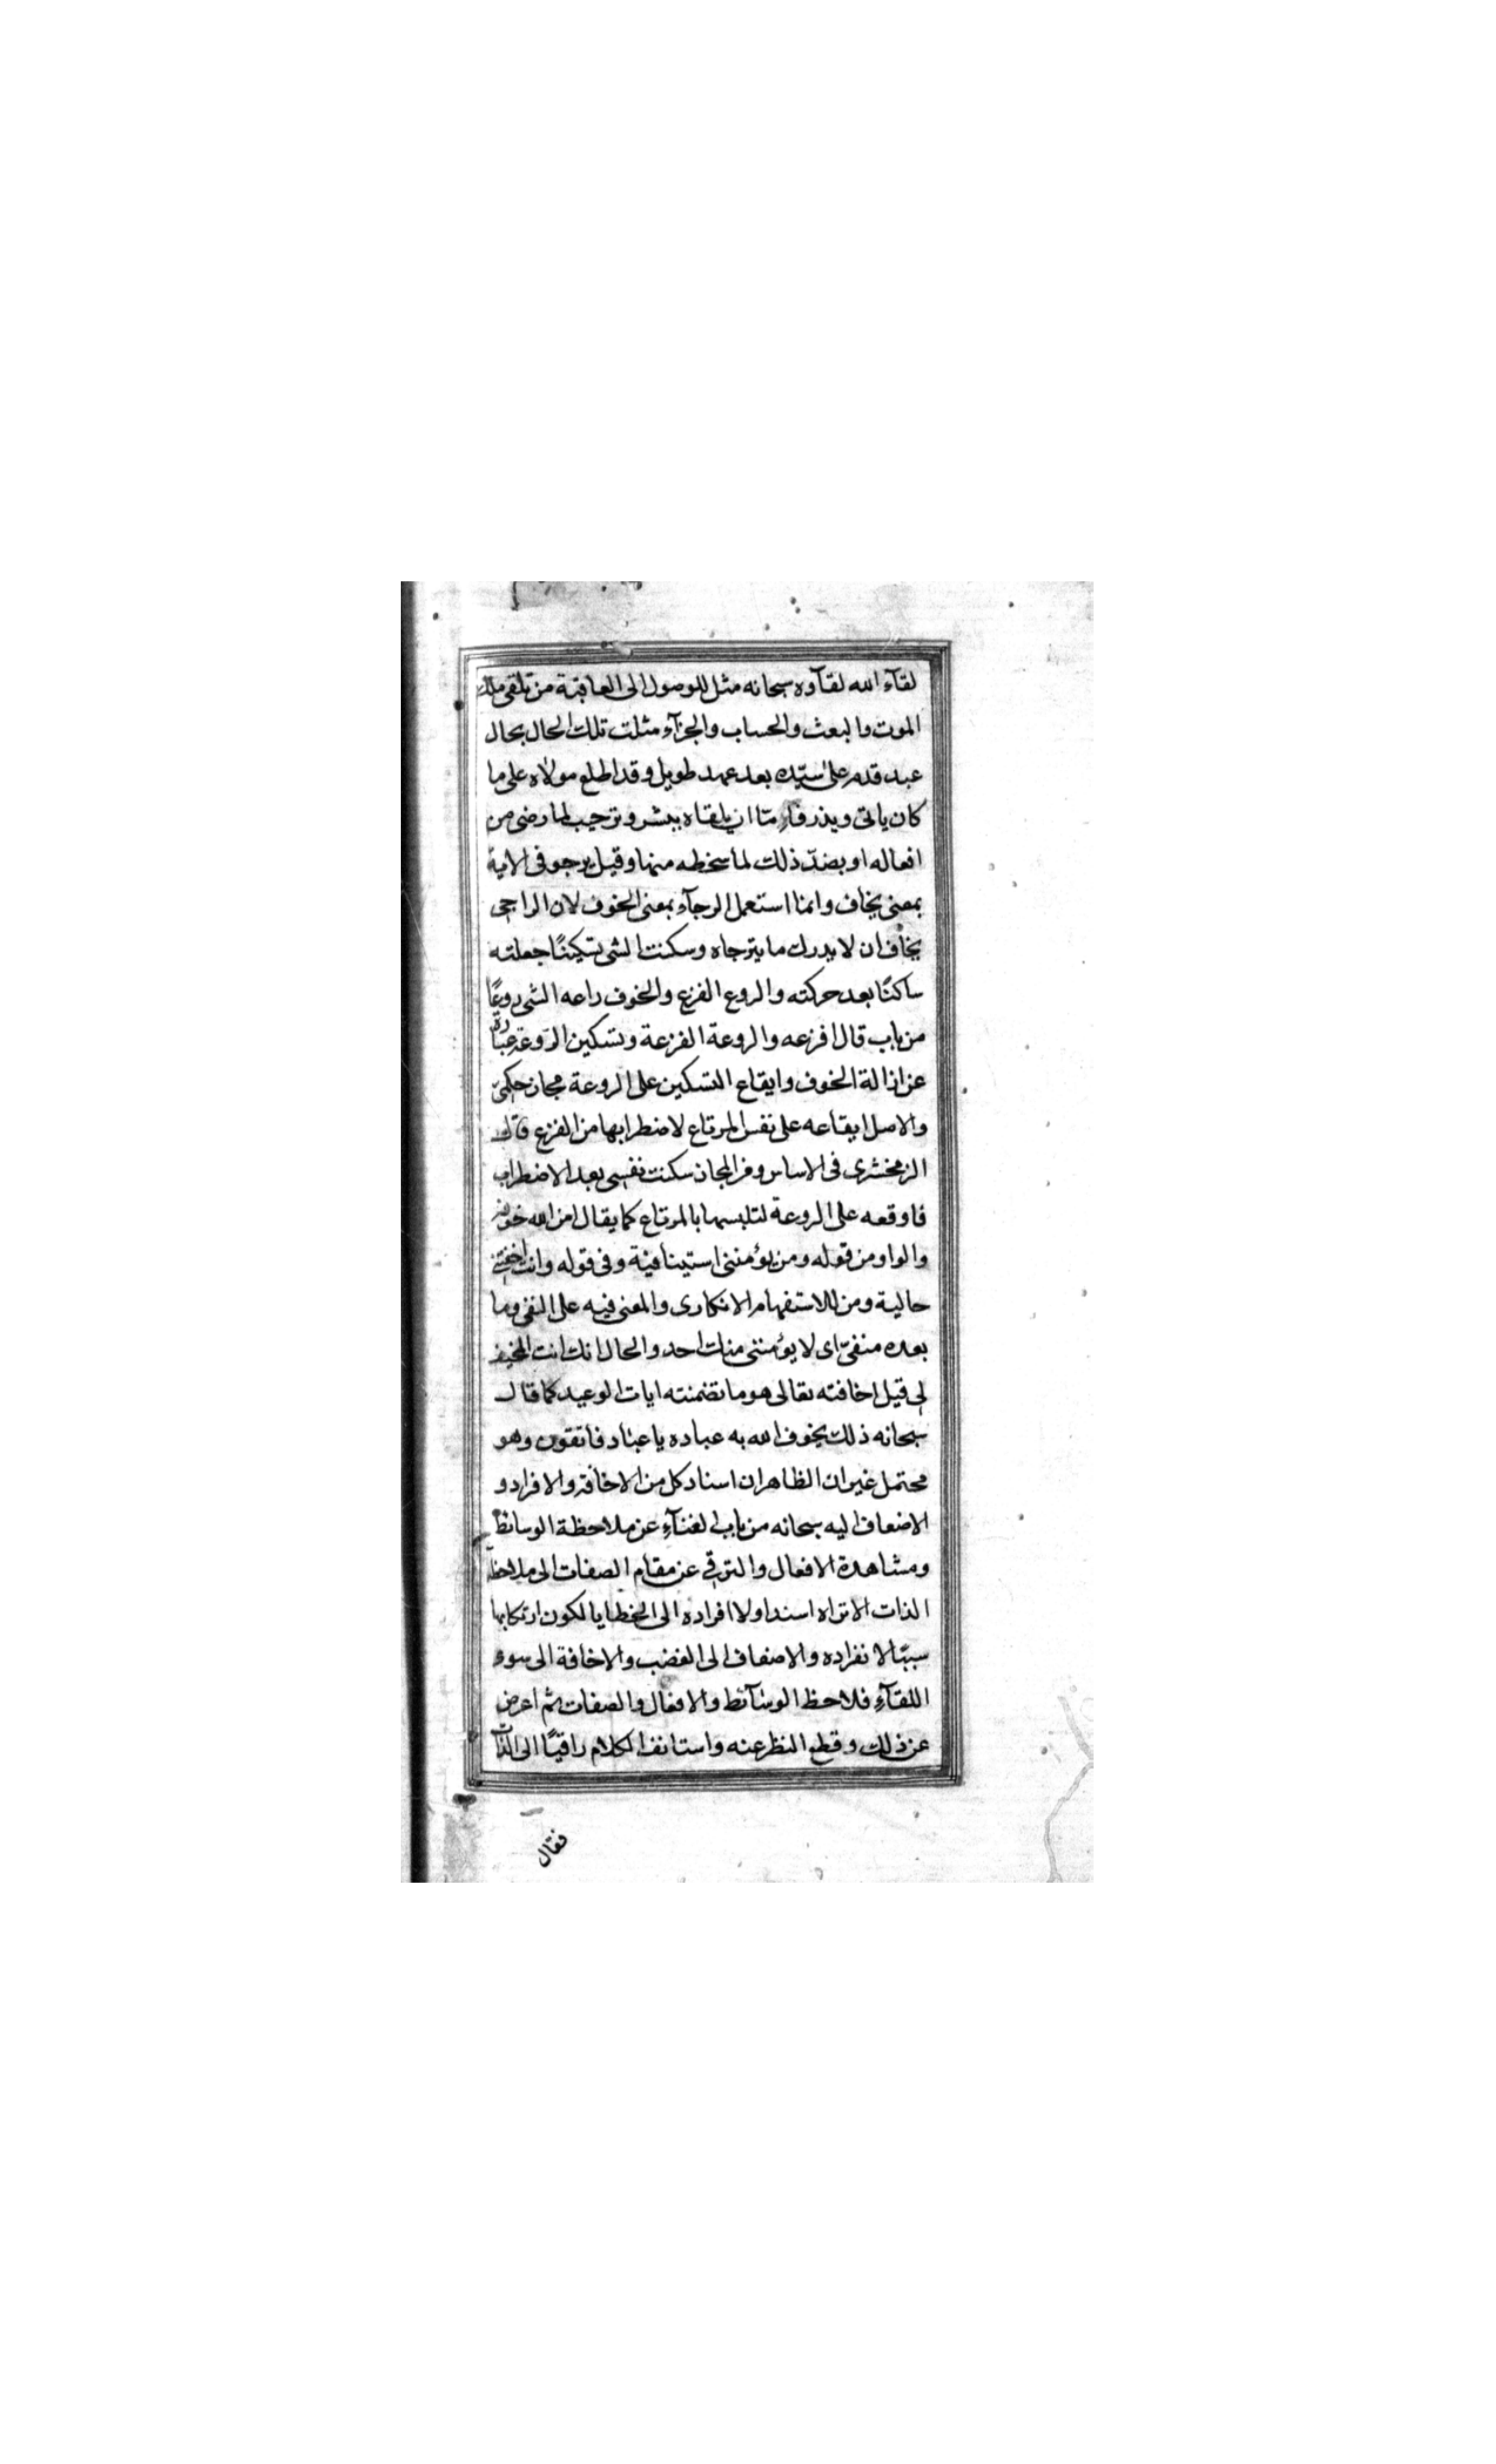 لقآء الله لقآوه سبحانه مثل للوصول الى العاقبة من تلقى ملك
الموت والبعث والحساب والجزآء مثلت تلك الحال بحال
عبد قدم على سيّده بعد عهد طويل وقد اطلع مولاه على ما
كان ياتى ويذر فامّا ان يلقاه ببشر وترحيب لما رضى من
افعاله او بضدّ ذلك لما سخطه منها وقيل يرجو فى الاية
بمعنى يخاف وانما استعمل الرجآء بمعنى الخوف لان الراجى
يخاف ان لا يدرك ما يترجاه وسكنت الشى تسكينًا جعلته
ساكنًا بعد حركته والروع الفزع والخوف راعه الشى روعًا
من باب قال افزعه والروعة الفزعة وتسكين الرّوعة عبارة
عن ازالة الخوف وايقاع التسكين على الروعة مجاز حكمى
والاصل ايقاعه على نفس المرتاع لاضطرابها من الفزع قال
الزمخشرى فى الاساس ومن المجاز سكنت نفسى بعد الاضطراب
فاوقعه على الروعة لتلبسها بالمرتاع كما يقال امن الله خوفه
والواو من قوله ومن يؤمننى استينافية وفى قوله وانت اخفتنى
حالية ومن للاستفهام الانكارى والمعنى فيه على النفى وما
بعده منفىّ اى لا يؤمننى منك احد والحال انك انت المخيف
لى قيل اخافته تعالى هو ما تضمنته ايات الوعيد كما قال
سبحانه ذلك يخوف الله به عباده يا عباد فاتقون وهو
محتمل غير ان الظاهر ان اسناد كل من الاخافة والافراد و
الاضعاف اليه سبحانه من باب الفنآء عن ملاحظة الوسائط
ومشاهدة الافعال والترقى عن مقام الصفات الى ملاحظة
الذات الا تراه اسند اولا افراده الى الخطايا لكون ارتكابها
سببًا لانفراده والاضعاف الى الغضب والاخافة الى سوء
اللقآء فلاحظ الوسآئط والافعال والصفات ثم اعرض
عن ذلك وقطع النظر عنه واستانف الكلام راقيًا الى الذات
فقال